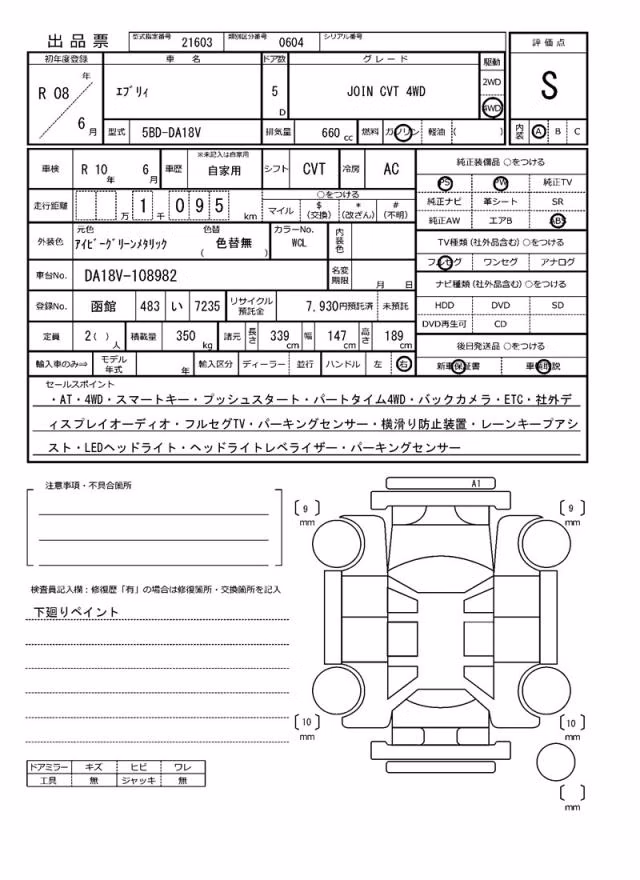 出品票 型式指定番号 21603 類別区分番号 0604 シリアル番号
評価点
S
初年度登録 車名 ドア数 グレード 駆動
R 08 年 6 月 ｴﾌﾞﾘｨ 5 D JOIN CVT 4WD 2WD 4WD
型式 5BD-DA18V 排気量 660 cc 燃料 ガソリン 軽油 ( ) 内装 A B C
車検 R 10 年 6 月 車歴 ※未記入は自家用 自家用 シフト CVT 冷房 AC
走行距離 万 1 千 0 9 5 km ○をつける
マイル $ (交換) * (改ざん) # (不明)
外装色 元色 ｱｲﾋﾞｰｸﾞﾘｰﾝﾒﾀﾘｯｸ 色替 ( 色替無 ) カラーNo. WCL 内装色
車台No. DA18V-108982 名変期限 月 日
登録No. 函館 483 い 7235 リサイクル預託金 7,930円預託済 未預託
定員 2( ) 人 積載量 350 kg 諸元 長さ 339 cm 幅 147 cm 高さ 189 cm
輸入車のみ⇒ モデル年式 年 輸入区分 ディーラー 並行 ハンドル 左 右
純正装備品 ○をつける
PS PW 純正TV
純正ナビ 革シート SR
純正AW エアB ABS
TV種類 (社外品含む) ○をつける
フルセグ ワンセグ アナログ
ナビ種類 (社外品含む) ○をつける
HDD DVD SD
DVD再生可 CD
後日発送品 ○をつける
新車保証書 車輌取説
セールスポイント
・AT・4WD・スマートキー・プッシュスタート・パートタイム4WD・バックカメラ・ETC・社外デ
ィスプレイオーディオ・フルセグTV・パーキングセンサー・横滑り防止装置・レーンキープアシ
スト・LEDヘッドライト・ヘッドライトレベライザー・パーキングセンサー
注意事項・不具合箇所
検査員記入欄：修復歴「有」の場合は修復箇所・交換箇所を記入
下廻りペイント
A1
9 mm
9 mm
10 mm
10 mm
mm
ドアミラー キズ ヒビ ワレ
工具 無 ジャッキ 無